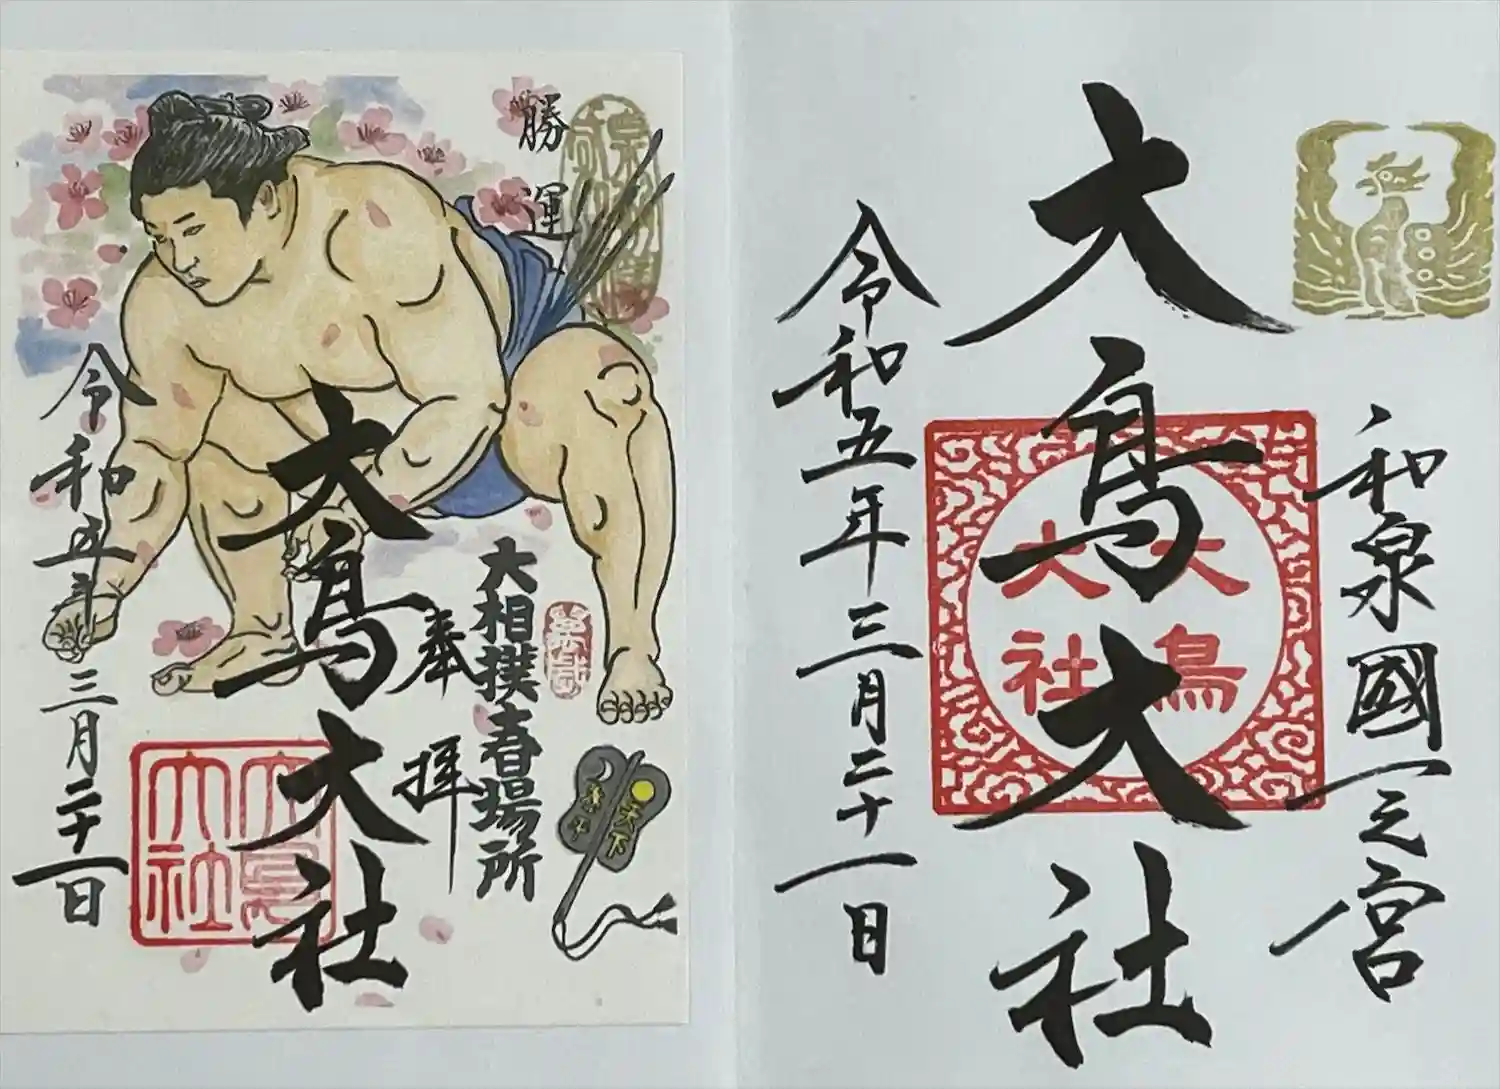 和泉國一之宮
大鳥大社
大鳥大社
令和五年三月二十一日
勝運
天下
泰平
大相撲春場所
奉拝
大鳥大社
大鳥大社
令和五年三月二十一日